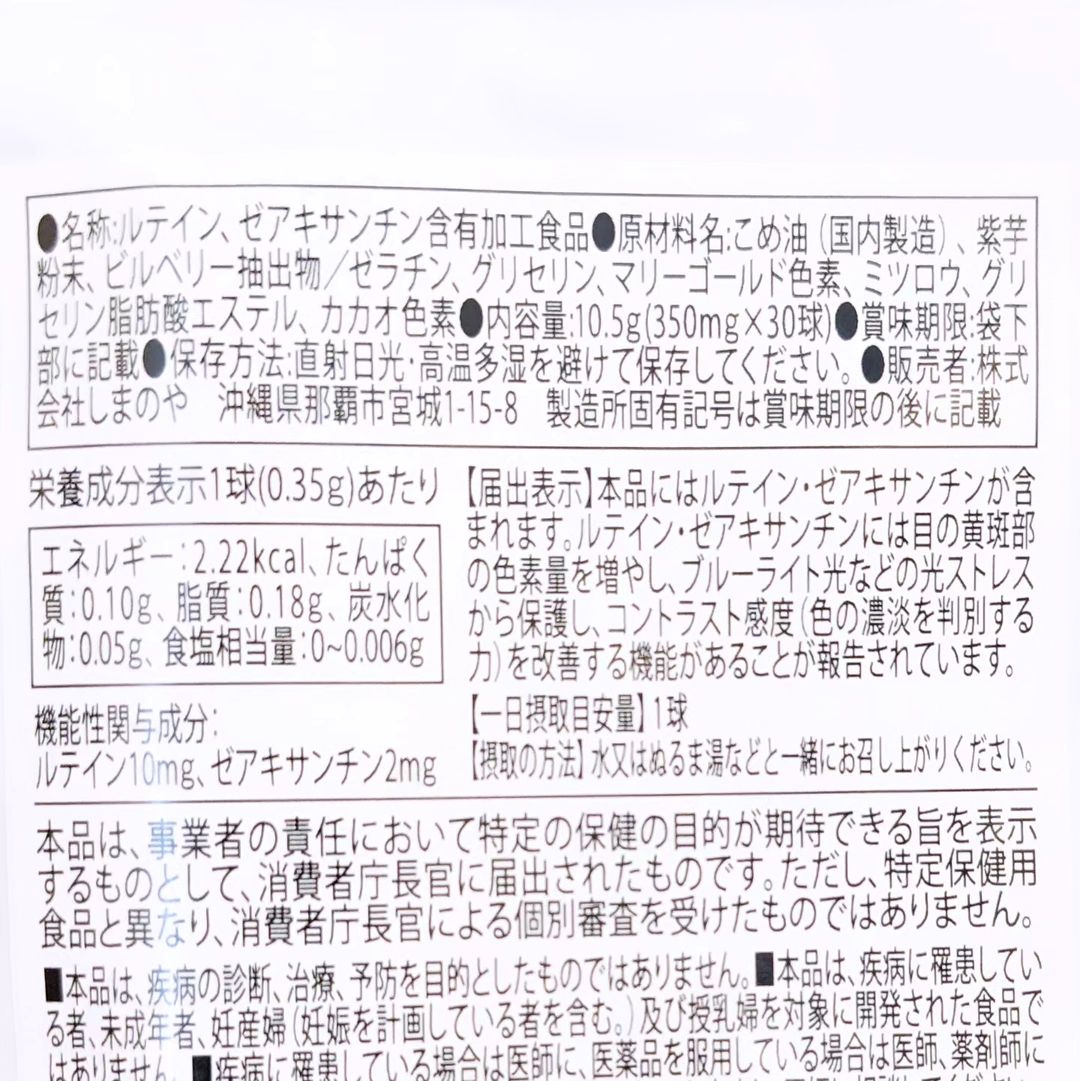 ●名称:ルテイン、ゼアキサンチン含有加工食品●原材料名:こめ油（国内製造）、紫芋
粉末、ビルベリー抽出物／ゼラチン、グリセリン、マリーゴールド色素、ミツロウ、グリ
セリン脂肪酸エステル、カカオ色素●内容量:10.5g(350mg×30球)●賞味期限:袋下
部に記載●保存方法:直射日光・高温多湿を避けて保存してください。●販売者:株式
会社しまのや　沖縄県那覇市宮城1-15-8　製造所固有記号は賞味期限の後に記載
栄養成分表示1球(0.35g)あたり
エネルギー：2.22kcal、たんぱく
質：0.10g、脂質：0.18g、炭水化
物：0.05g、食塩相当量：0~0.006g
機能性関与成分：
ルテイン10mg、ゼアキサンチン2mg
【届出表示】本品にはルテイン・ゼアキサンチンが含
まれます。ルテイン・ゼアキサンチンには目の黄斑部
の色素量を増やし、ブルーライト光などの光ストレス
から保護し、コントラスト感度（色の濃淡を判別する
力）を改善する機能があることが報告されています。
【一日摂取目安量】1球
【摂取の方法】水又はぬるま湯などと一緒にお召し上がりください。
本品は、事業者の責任において特定の保健の目的が期待できる旨を表示
するものとして、消費者庁長官に届出されたものです。ただし、特定保健用
食品と異なり、消費者庁長官による個別審査を受けたものではありません。
■本品は、疾病の診断、治療、予防を目的としたものではありません。■本品は、疾病に罹患してい
る者、未成年者、妊産婦（妊娠を計画している者を含む。）及び授乳婦を対象に開発された食品で
はありません。■疾病に罹患している場合は医師に、医薬品を服用している場合は医師、薬剤師に